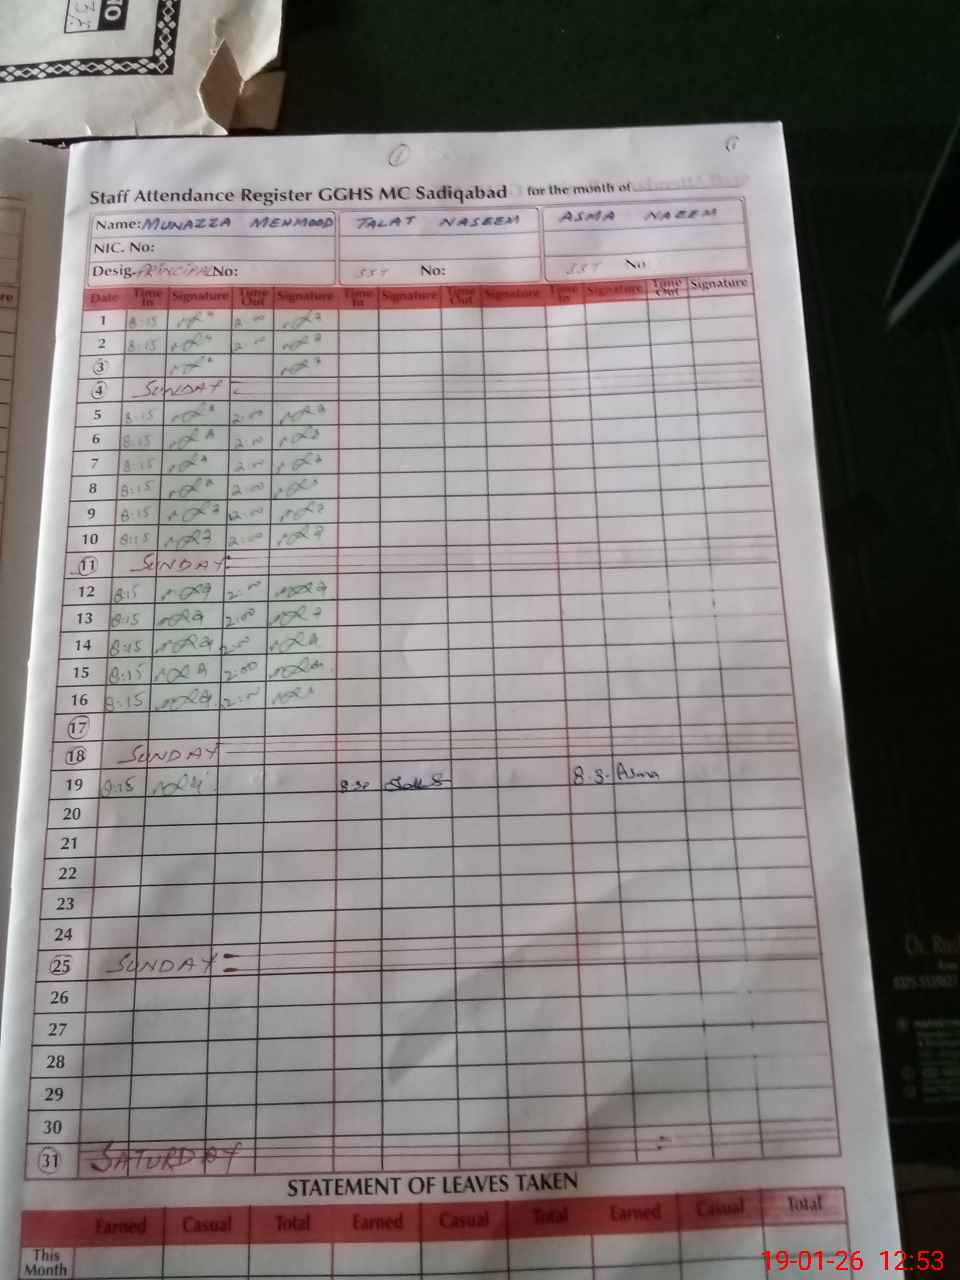 Staff Attendance Register GGHS MC Sadiqabad for the month of
Name: MUNAZZA MEHMOOD TALAT NASEEM ASMA NAZEEM
NIC. No:
Desig. PRINCIPAL No: SST No: SST No
Date Time In Signature Time Out Signature Time In Signature Time Out Signature Time In Signature Time Out Signature
1 8:15 2:00
2 8:15 2:00
3
4 SUNDAY
5 8:15 2:00
6 8:15 2:00
7 8:15 2:00
8 8:15 2:00
9 8:15 2:00
10 8:15 2:00
11 SUNDAY
12 8:15 2:00
13 8:15 2:00
14 8:15 2:00
15 8:15 2:00
16 8:15 2:00
17
18 SUNDAY
19 8:15 8:30 Asma
20
21
22
23
24
25 SUNDAY
26
27
28
29
30
31 SATURDAY
STATEMENT OF LEAVES TAKEN
Earned Casual Total Earned Casual Total Earned Casual Total
This Month
19-01-26 12:53